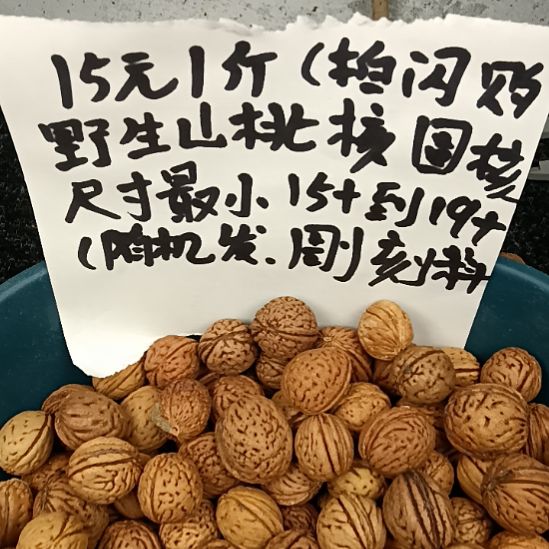 15元1斤(拍闪购
野生山桃核圆核
尺寸最小15+到19+
(随机发.雕刻料